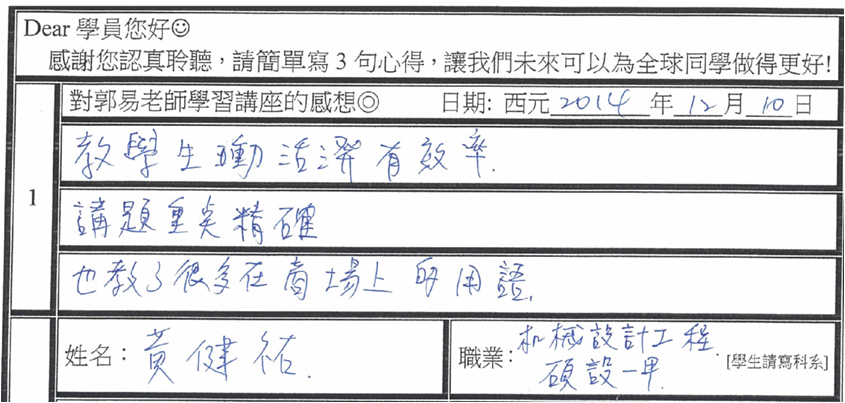 Dear 學員您好☺
感謝您認真聆聽，請簡單寫 3 句心得，讓我們未來可以為全球同學做得更好!
1
對郭易老師學習講座的感想◎ 日期: 西元 2014 年 12 月 10 日
教學生動活潑有效率.
講題重點精確
也教了很多在商場上的用語.
姓名：黃健祐.
職業：机械設計工程.
碩設一甲.
[學生請寫科系]